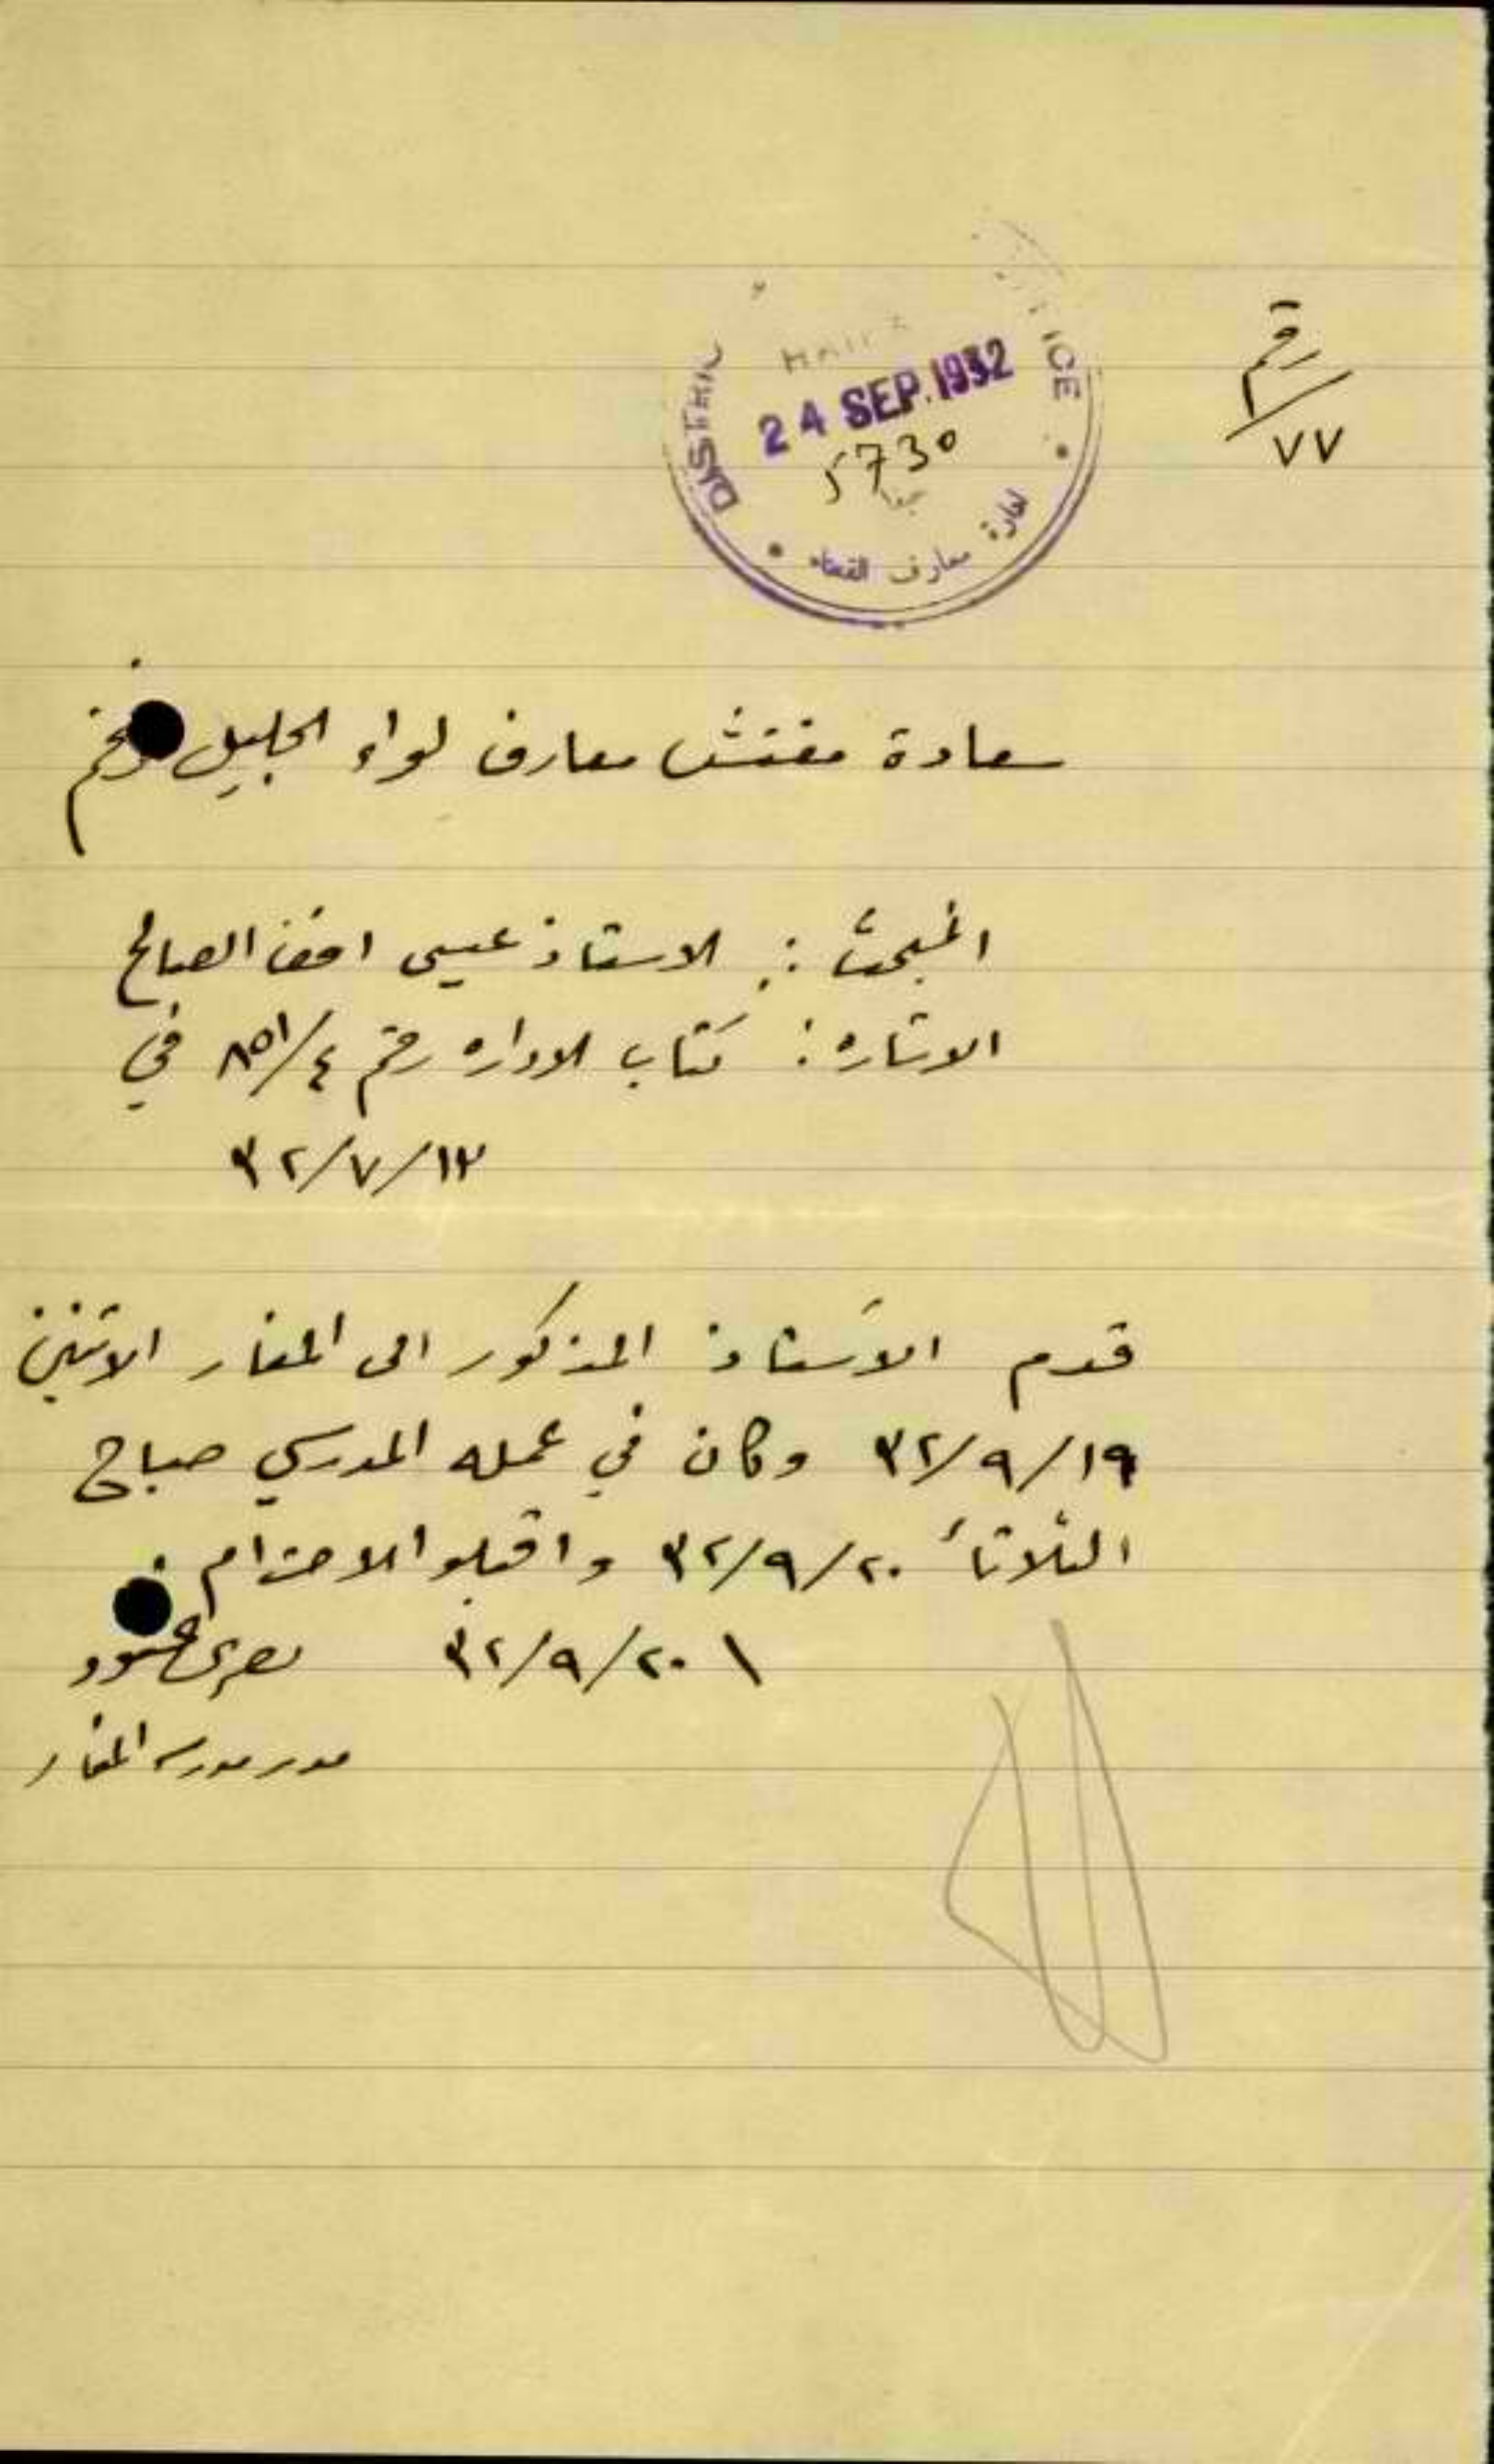 رقم
٧٧
DISTRI ICE
HAIFA
24 SEP. 1932
5730
حيفا
ادارة معارف القضاء
سعادة مفتش معارف لواء الجليل
المبحث : الاستاذ عيسى افندي الصالح
الاشاره : كتاب الاداره رقم ٨٥١/٤ في
٣٢/٧/١٣
قدم الاستاذ المذكور الى المغار الاثنين
٣٢/٩/١٩ وكان في عمله المدرسي صباح
الثلاثاء ٣٢/٩/٢٠ واقبلوا الاحترام .
٣٢/٩/٢٠
مدير مدرسة المغار